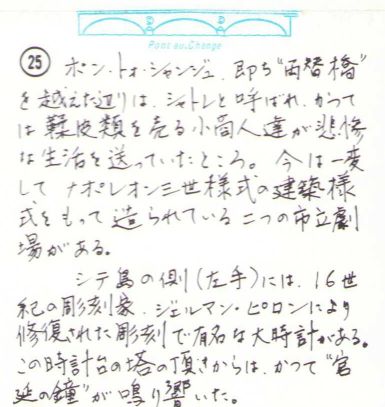 Pont au Change
25 ポン・トォ・シャンジュ、即ち“両替橋”
を越えた辺りは、シャトレと呼ばれ、かつて
は難皮類を売る小商人達が悲惨
な生活を送っていたところ。今は一変
して ナポレオン三世様式の建築様
式をもって造られている二つの市立劇
場がある。
シテ島の側(左手)には、16世
紀の彫刻家、ジェルマン・ピロンにより
修復された彫刻で有名な大時計がある。
この時計台の塔の頂きからは、かつて“宮
廷の鐘”が鳴り響いた。